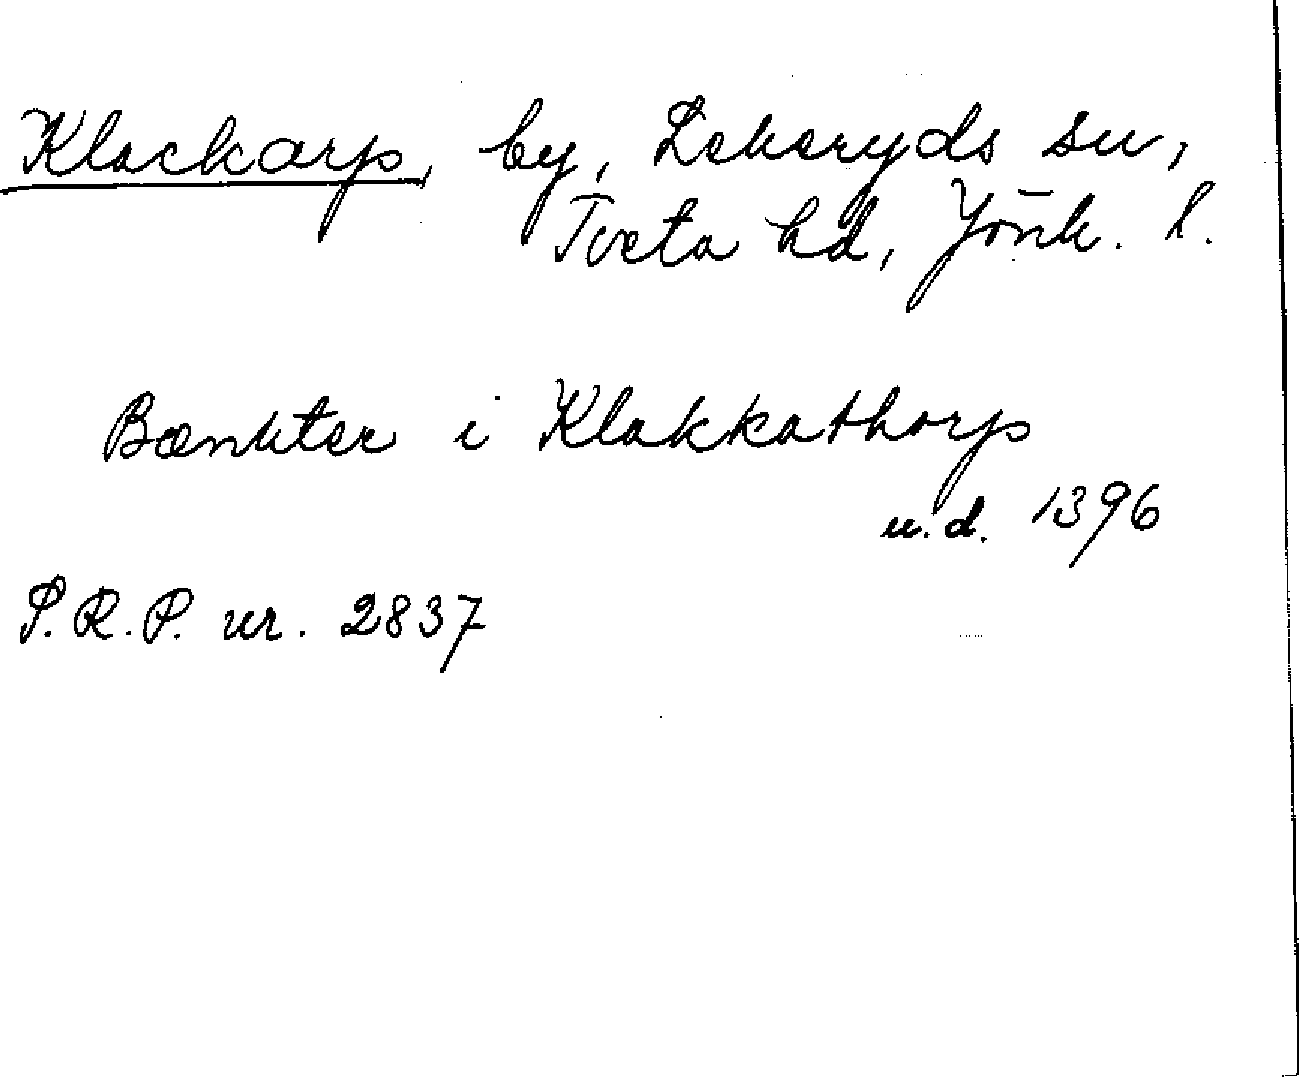 Klackarp, by, Lekeryds sn,
Tveta hd, Jönk. l.
Bænkter i Klakkathorp
u.d. 1396
S.R.P. nr. 2837